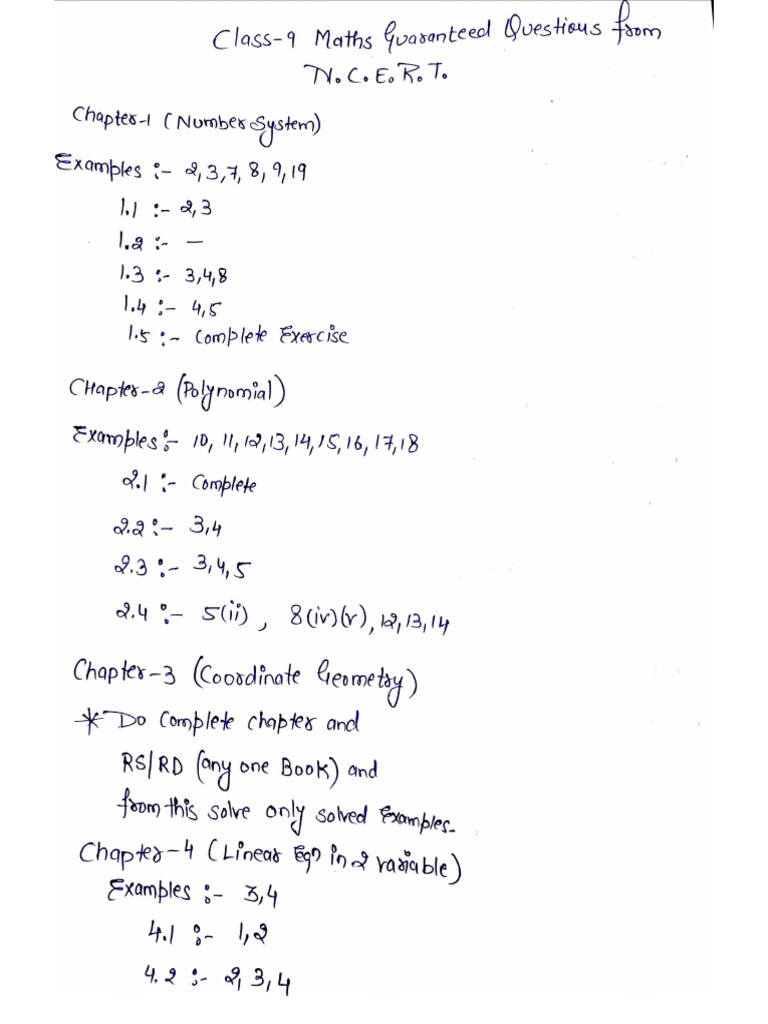 Class-9 Maths Guaranteed Questions from
N.C.E.R.T.
Chapter-1 (Number System)
Examples :- 2,3,7,8,9,19
1.1 :- 2,3
1.2 :- —
1.3 :- 3,4,8
1.4 :- 4,5
1.5 :- Complete Exercise
CHapter-2 (Polynomial)
Examples :- 10, 11, 12, 13, 14, 15, 16, 17, 18
2.1 :- Complete
2.2 :- 3,4
2.3 :- 3,4,5
2.4 :- 5(ii), 8(iv)(v), 12, 13, 14
Chapter-3 (Coordinate Geometry)
* Do Complete chapter and
RS/RD (any one Book) and
from this solve only solved Examples.
Chapter-4 (Linear Eqn in 2 variable)
Examples :- 3,4
4.1 :- 1,2
4.2 :- 2,3,4